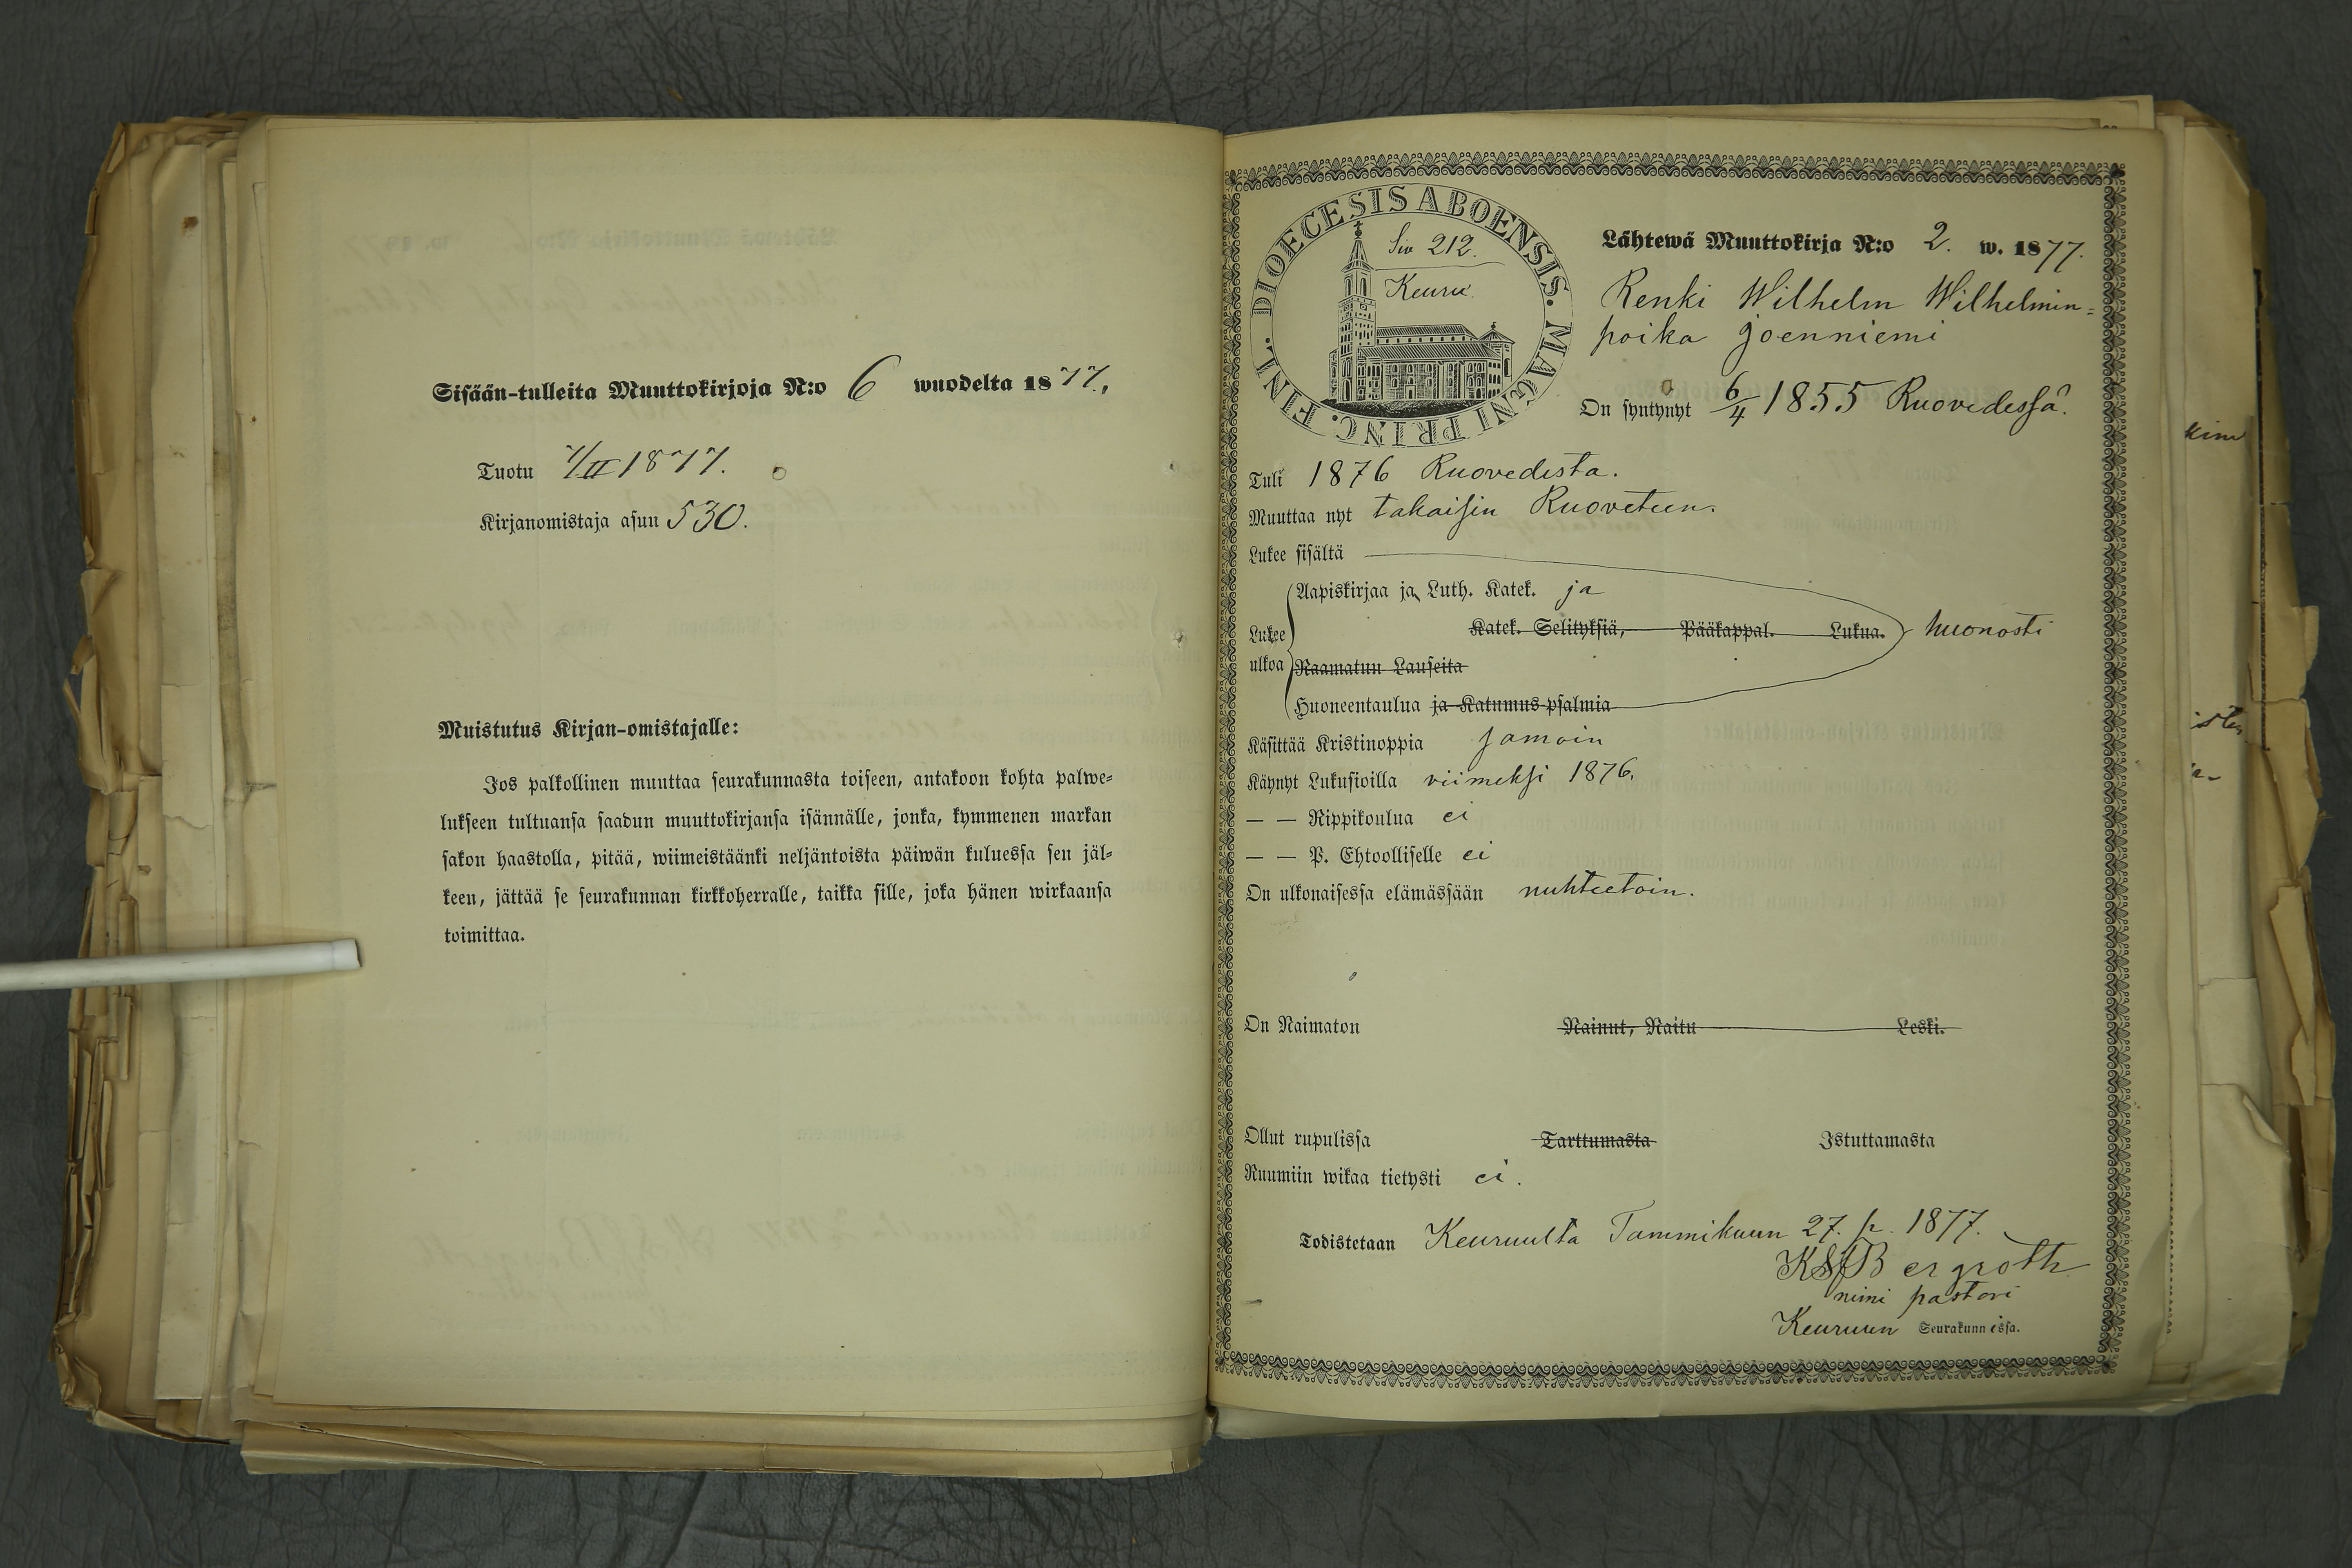 Sisään-tulleita Muuttokirjoja N:o 6 wuodelta 1877.
Tuotu 7/II 1877.
Kirjanomistaja asuu 530.
Muistutus Kirjan-omistajalle:
Jos palkollinen muuttaa seurakunnasta toiseen, antakoon kohta palwe-
lukseen tultuansa saadun muuttokirjansa isännälle, jonka, kymmenen markan
sakon haastolla, pitää, wiimeistäänki neljäntoista päiwän kuluessa sen jäl-
keen, jättää se seurakunnan kirkkoherralle, taikka sille, joka hänen wirkaansa
toimittaa.
DIOECESIS ABOENSIS. MAGNI PRINC. FINL.
Siv 212.
Keuru.
Lähtewä Muuttokirja N:o 2. w. 1877.
Renki Wilhelm Wilhelmin=
poika Joenniemi
On syntynyt 6/4 1855 Ruovedessä.
Tuli 1876 Ruovedesta.
Muuttaa nyt takaisin Ruoveteen.
Lukee sisältä
Aapiskirjaa ja Luth. Katek. ja
Lukee Katek. Selityksiä, Pääkappal. Lukua. huonosti
ulkoa Raamatun Lauseita
Huoneentaulua ja Katumus-psalmia
Käsittää Kristinoppia samoin
Käynyt Lukusioilla viimeksi 1876.
— — Rippikoulua ei
— — P. Ehtoolliselle ei
On ulkonaisessa elämässään nuhteetoin.
On Naimaton Nainut, Naitu Leski.
Ollut rupulissa Tarttumasta Istuttamasta
Ruumiin wikaa tietysti ei.
Todistetaan Keuruulta Tammikuun 27. p. 1877.
Bergroth
nimi pastori
Keuruun Seurakunnassa.